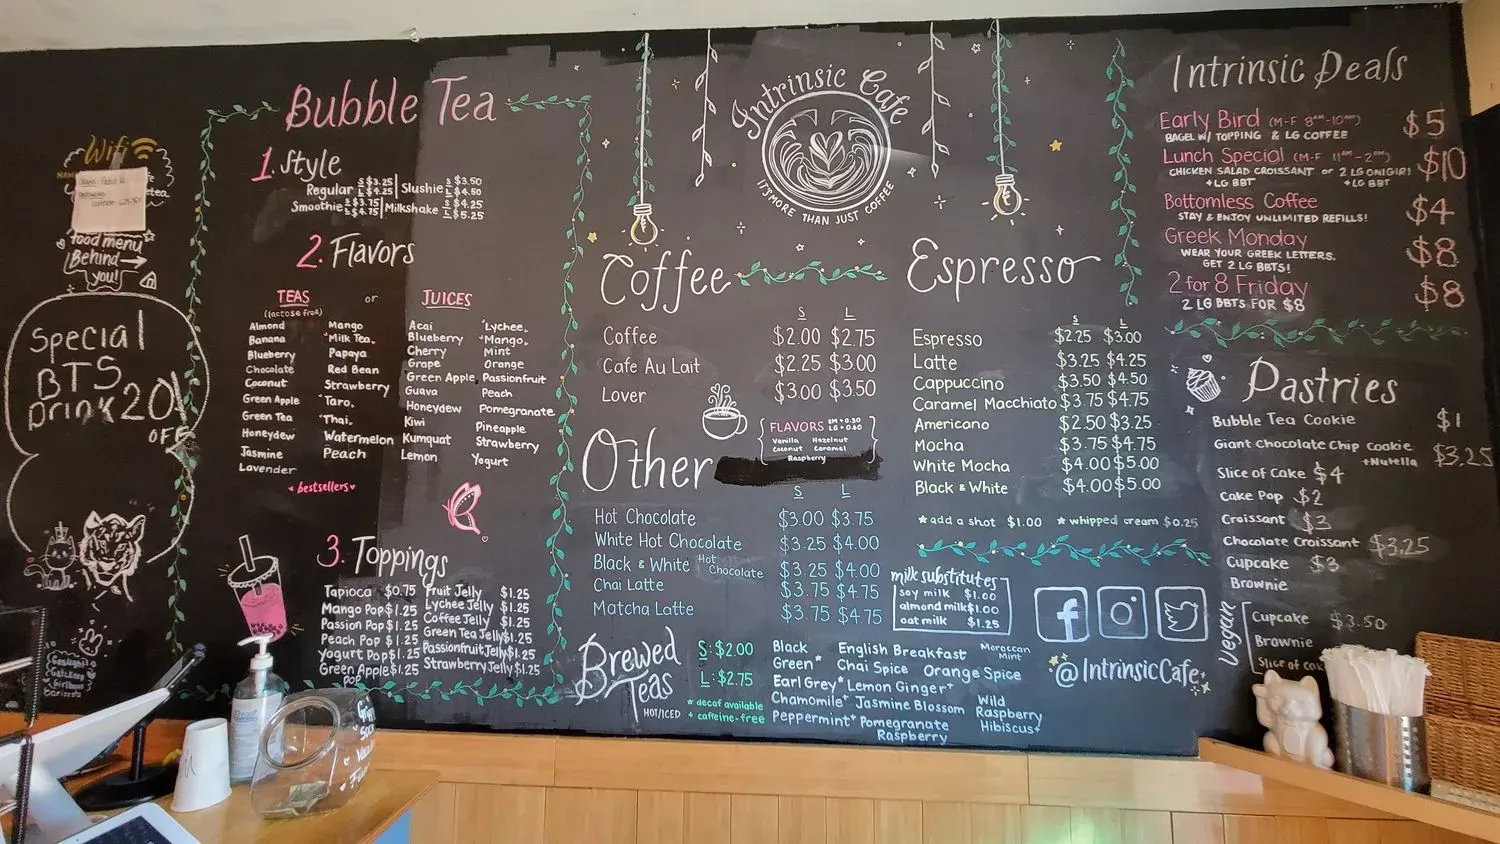 Wifi
food menu
Behind
you!
Special
BTS
Drink 20%
OFF
Bubble Tea
1. Style
Regular S $3.25 L $4.25 Slushie S $3.50 L $4.50
Smoothie S $3.75 L $4.75 Milkshake S $4.25 L $5.25
2. Flavors
TEAS or JUICES
(lactose free)
Almond Mango
Banana *Milk Tea*
Blueberry Papaya
Chocolate Red Bean
Coconut Strawberry
Green Apple *Taro*
Green Tea *Thai*
Honeydew Watermelon
Jasmine Peach
Lavender
Acai *Lychee*
Blueberry *Mango*
Cherry Mint
Grape Orange
Green Apple Passionfruit
Guava Peach
Honeydew Pomegranate
Kiwi Pineapple
Kumquat Strawberry
Lemon Yogurt
* bestsellers *
3. Toppings
Tapioca $0.75 Fruit Jelly $1.25
Mango Pop $1.25 Lychee Jelly $1.25
Passion Pop $1.25 Coffee Jelly $1.25
Peach Pop $1.25 Green Tea Jelly $1.25
Yogurt Pop $1.25 Passionfruit Jelly $1.25
Green Apple Pop $1.25 Strawberry Jelly $1.25
Intrinsic Cafe
IT'S MORE THAN JUST COFFEE
Coffee
S L
Coffee $2.00 $2.75
Cafe Au Lait $2.25 $3.00
Lover $3.00 $3.50
FLAVORS SM + 0.30 LG + 0.60
Vanilla Hazelnut
Coconut Caramel
Raspberry
Other
S L
Hot Chocolate $3.00 $3.75
White Hot Chocolate $3.25 $4.00
Black & White Hot Chocolate $3.25 $4.00
Chai Latte $3.75 $4.75
Matcha Latte $3.75 $4.75
Espresso
S L
Espresso $2.25 $3.00
Latte $3.25 $4.25
Cappuccino $3.50 $4.50
Caramel Macchiato $3.75 $4.75
Americano $2.50 $3.25
Mocha $3.75 $4.75
White Mocha $4.00 $5.00
Black & White $4.00 $5.00
*add a shot $1.00 *whipped cream $0.25
milk substitutes
soy milk $1.00
almond milk $1.00
oat milk $1.25
@IntrinsicCafe
Brewed
Teas
HOT/ICED
S: $2.00
L: $2.75
* decaf available
+ caffeine-free
Black English Breakfast Moroccan Mint
Green* Chai Spice Orange Spice
Earl Grey* Lemon Ginger+
Chamomile+ Jasmine Blossom Wild Raspberry Hibiscus+
Peppermint+ Pomegranate Raspberry
Intrinsic Deals
Early Bird (M-F 8AM-10AM) $5
BAGEL W/ TOPPING & LG COFFEE
Lunch Special (M-F 11AM-2PM) $10
CHICKEN SALAD CROISSANT or 2 LG ONIGIRI
+LG BBT +LG BBT
Bottomless Coffee $4
STAY & ENJOY UNLIMITED REFILLS!
Greek Monday $8
WEAR YOUR GREEK LETTERS,
GET 2 LG BBTS!
2 for 8 Friday $8
2 LG BBTS FOR $8
Pastries
Bubble Tea Cookie $1
Giant Chocolate Chip Cookie $3.25
+Nutella
Slice of Cake $4
Cake Pop $2
Croissant $3
Chocolate Croissant $3.25
Cupcake $3
Brownie
Vegan
Cupcake $3.50
Brownie
Slice of cake